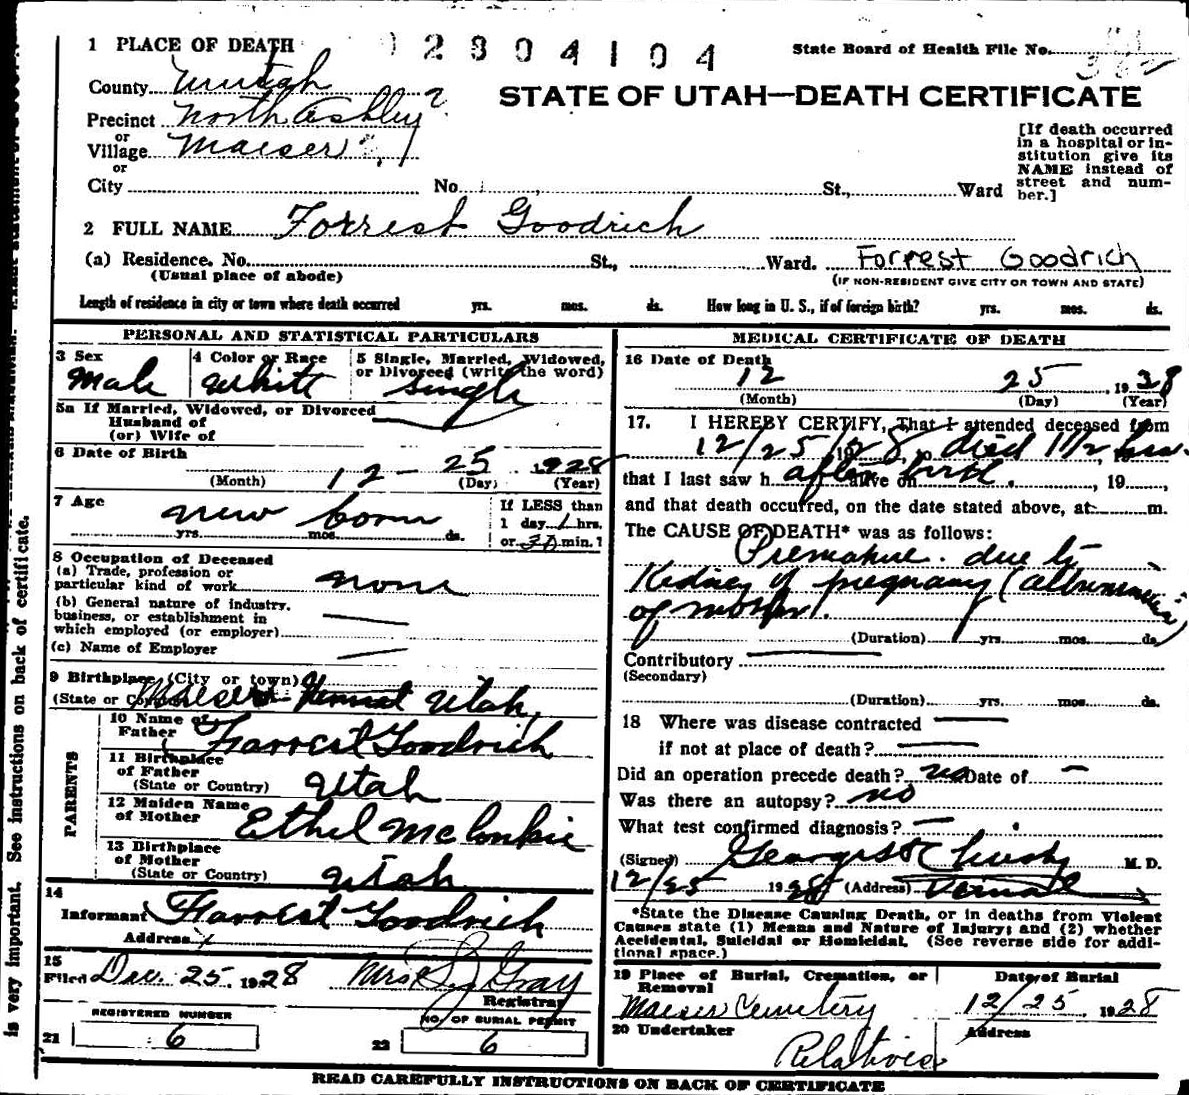 1 PLACE OF DEATH
2804104
State Board of Health File No.
County Uintah
STATE OF UTAH—DEATH CERTIFICATE
Precinct North Ashley
or
Village Maeser
or
City No. St., Ward
[If death occurred
in a hospital or in-
stitution give its
NAME instead of
street and num-
ber.]
2 FULL NAME Forrest Goodrich
(a) Residence. No. St., Ward. Forrest Goodrich
(Usual place of abode)
(IF NON-RESIDENT GIVE CITY OR TOWN AND STATE)
Length of residence in city or town where death occurred yrs. mos. ds. How long in U. S., if of foreign birth? yrs. mos. ds.
PERSONAL AND STATISTICAL PARTICULARS
3 Sex 4 Color or Race 5 Single, Married, Widowed,
or Divorced (write the word)
Male White Single
5a If Married, Widowed, or Divorced
Husband of
(or) Wife of
6 Date of Birth
12 - 25 1928
(Month) (Day) (Year)
7 Age
new born
yrs. mos. ds.
If LESS than
1 day 1 hrs.
or 30 min.?
8 Occupation of Deceased
(a) Trade, profession or
particular kind of work none
(b) General nature of industry,
business, or establishment in
which employed (or employer)
(c) Name of Employer
9 Birthplace (City or town)
(State or Country) Maeser Vernal Utah
PARENTS
10 Name of
Father Forrest Goodrich
11 Birthplace
of Father
(State or Country) Utah
12 Maiden Name
of Mother Ethel McConkie
13 Birthplace
of Mother
(State or Country) Utah
14
Informant Forrest Goodrich
Address
15
Filed Dec. 25 1928 Mrs Gray
Registrar
REGISTERED NUMBER
21 6
NO. OF BURIAL PERMIT
22 6
MEDICAL CERTIFICATE OF DEATH
16 Date of Death
12 25, 1928
(Month) (Day) (Year)
17. I HEREBY CERTIFY, That I attended deceased from
12/25/1928, to died 1 1/2 hrs.
that I last saw h alive on , 19 ,
after birth.
and that death occurred, on the date stated above, at m.
The CAUSE OF DEATH* was as follows:
Premature due to
Kidney of pregnancy (albuminuria)
of mother.
(Duration) yrs. mos. ds.
Contributory
(Secondary)
(Duration) yrs. mos. ds.
18 Where was disease contracted
if not at place of death?
Did an operation precede death? no Date of
Was there an autopsy? no
What test confirmed diagnosis?
(Signed) M. D.
12/25 1928 (Address) Vernal
*State the Disease Causing Death, or in deaths from Violent
Causes state (1) Means and Nature of Injury; and (2) whether
Accidental, Suicidal or Homicidal. (See reverse side for addi-
tional space.)
19 Place of Burial, Cremation, or
Removal
Date of Burial
Maeser Cemetery 12/25 1928
20 Undertaker Address
Relatives
READ CAREFULLY INSTRUCTIONS ON BACK OF CERTIFICATE
is very important. See instructions on back of certificate.